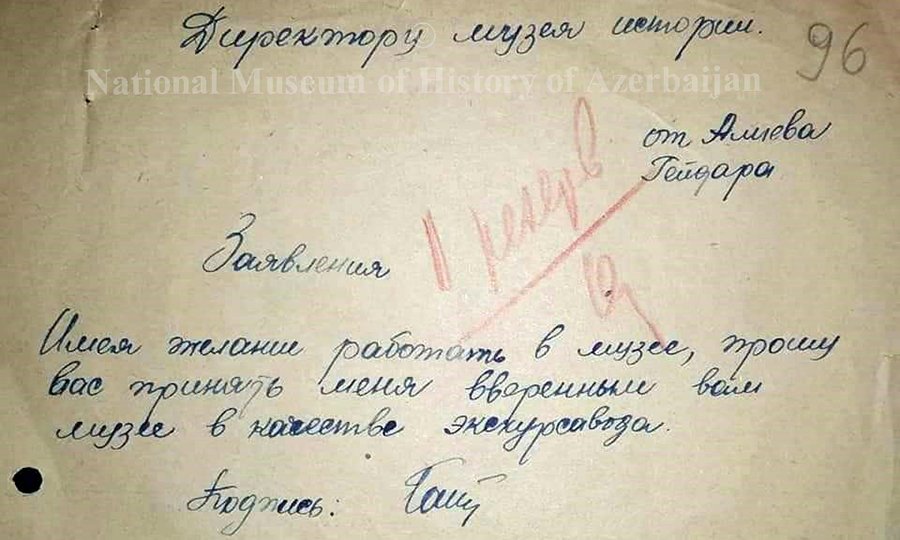 Директору музея истории.
96
National Museum of History of Azerbaijan
от Алиева
Гейдара
резерв
Заявления
Имея желание работать в музее, прошу
вас принять меня вверенным вам
музее в качестве экскурсавода.
Подпись: